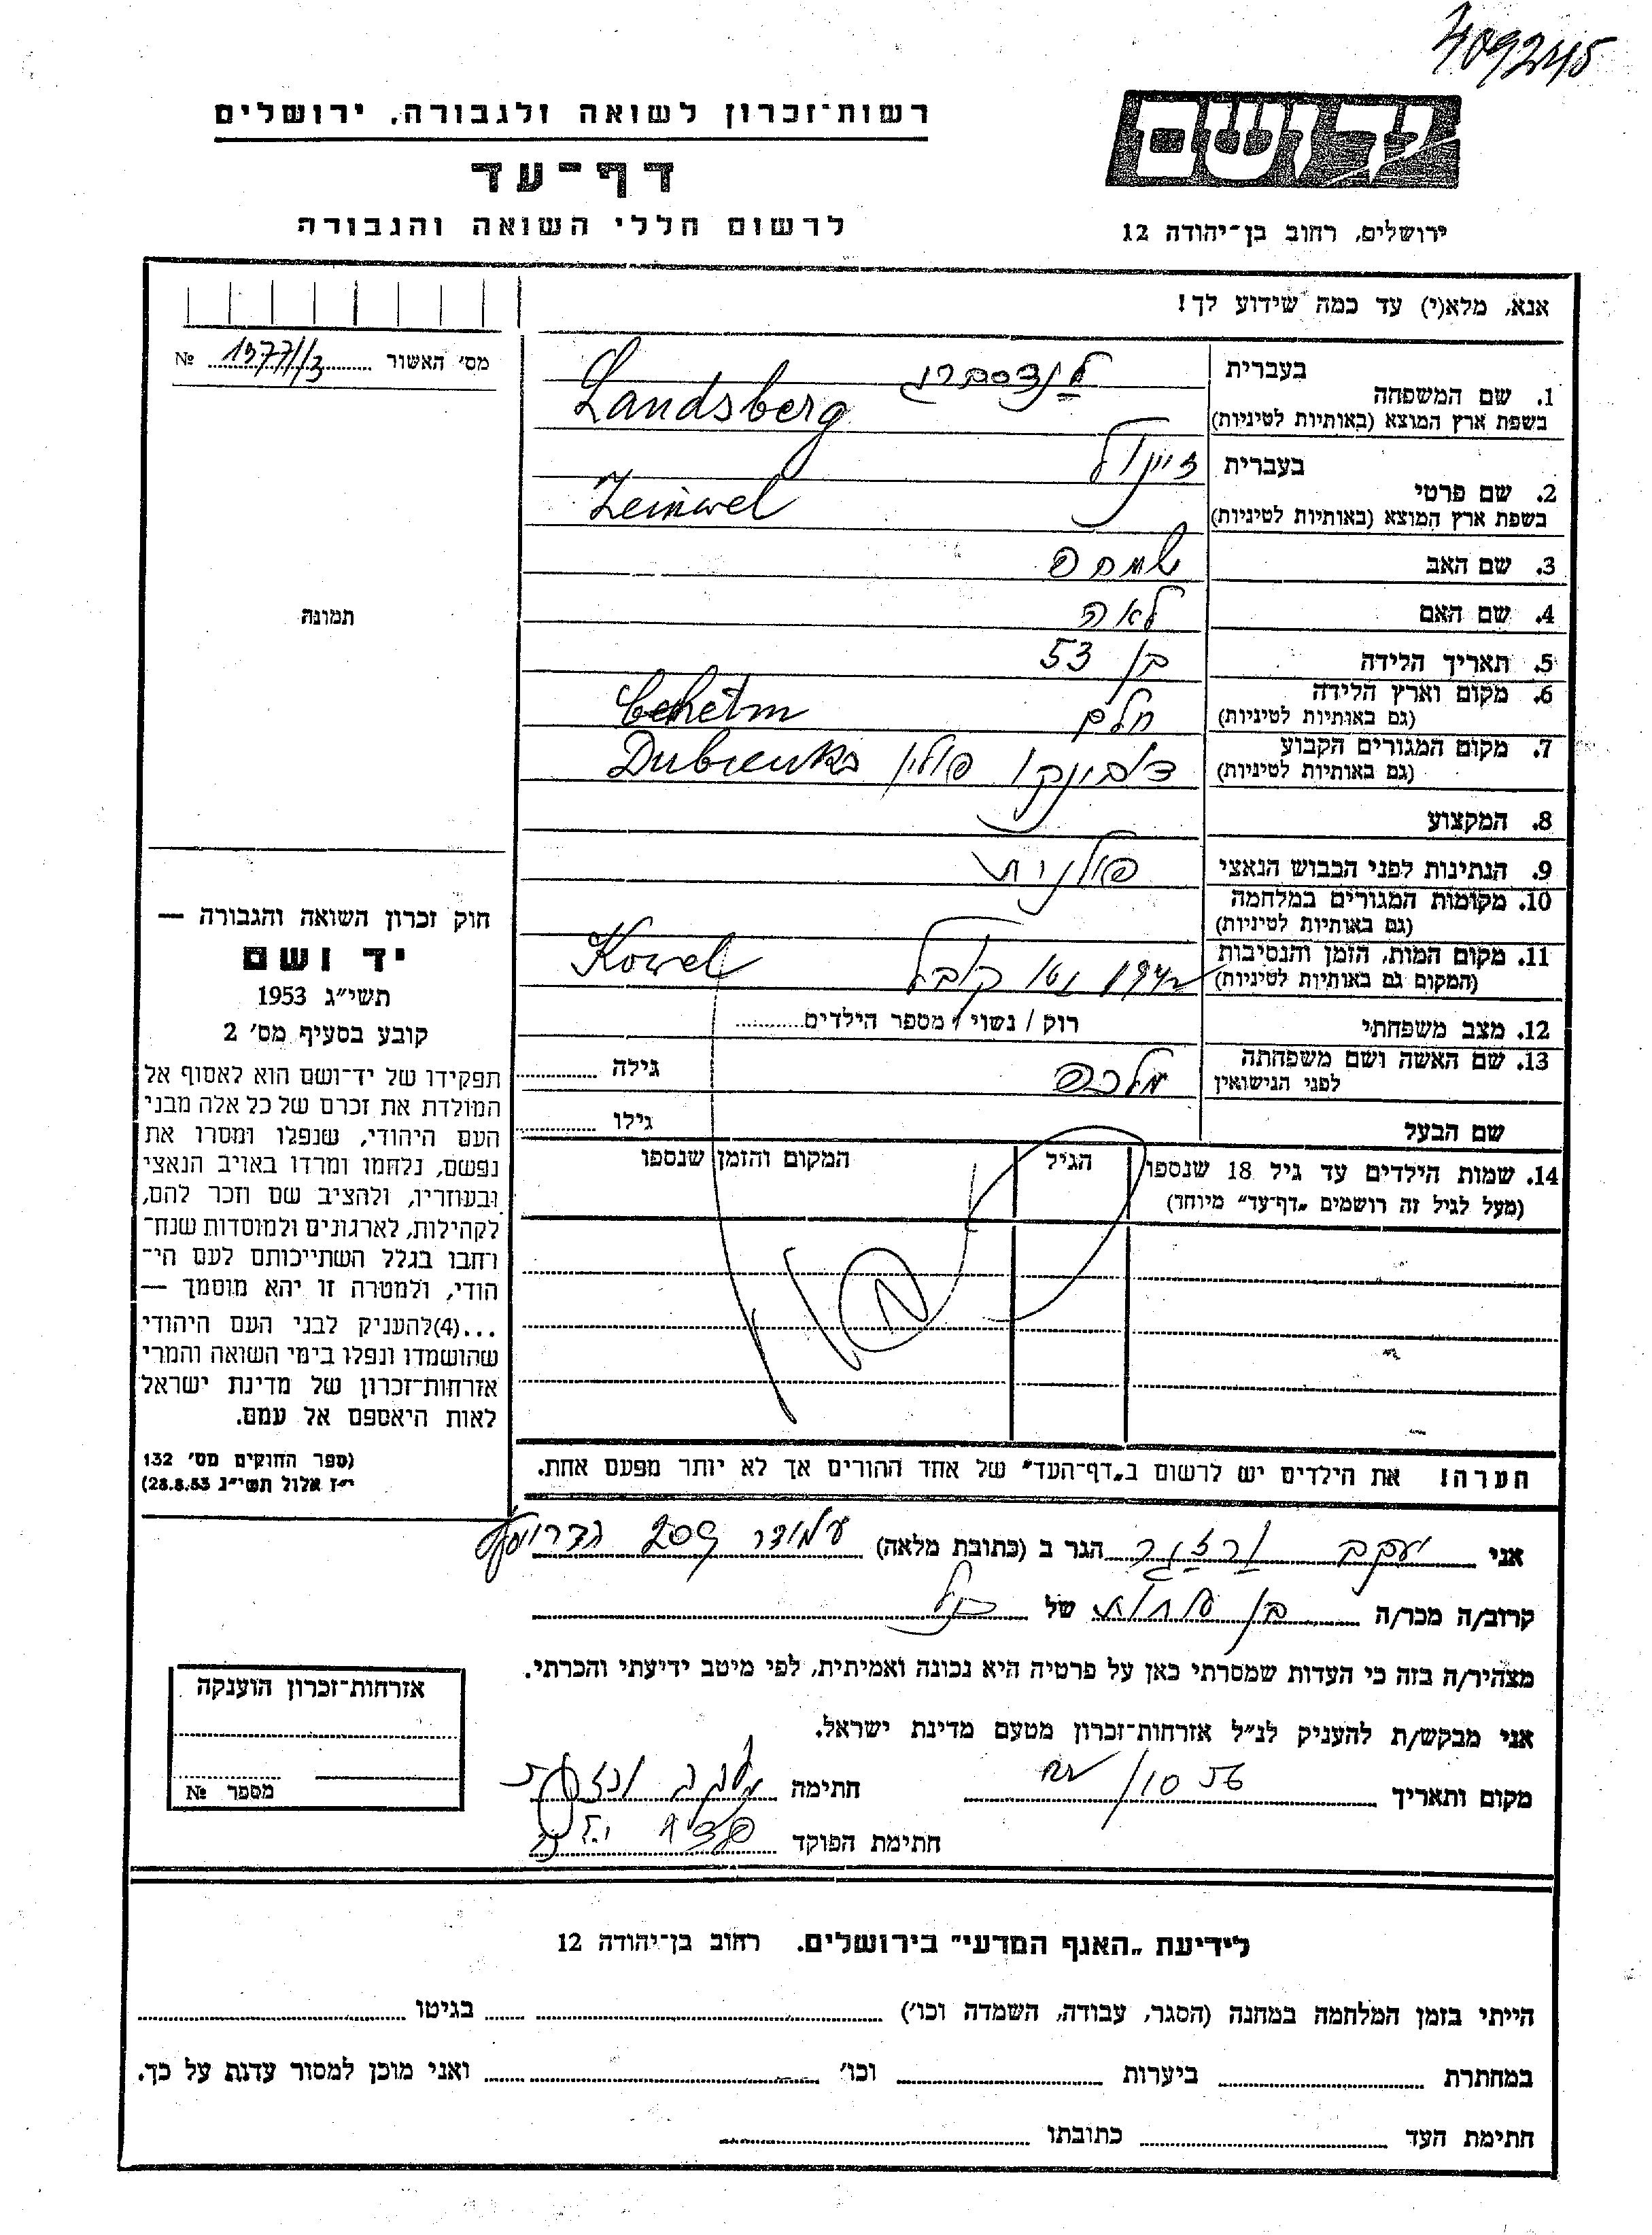 4092245
רשות-זכרון לשואה ולגבורה, ירושלים
דף-עד
לרשום חללי השואה והגבורה
יד ושם
ירושלים, רחוב בן-יהודה 12
אנא, מלא(י) עד כמה שידוע לך!
מס' האשור 1377/13 №
תמונה
חוק זכרון השואה והגבורה —
יד ושם
תשי״ג 1953
קובע בסעיף מס' 2
תפקידו של יד-ושם הוא לאסוף אל
המולדת את זכרם של כל אלה מבני
העם היהודי, שנפלו ומסרו את
נפשם, נלחמו ומרדו באויב הנאצי
ובעוזריו, ולהציב שם וזכר להם,
לקהילות, לארגונים ולמוסדות שנח-
רחבו בגלל השתייכותם לעם הי-
הודי, ולמטרה זו יהא מוסמך —
...(4)להעניק לבני העם היהודי
שהושמדו ונפלו בימי השואה והמרי
אזרחות-זכרון של מדינת ישראל
לאות היאספם אל עמם.
(ספר החוקים מס' 132
י״ז אלול תשי״ג 28.8.53)
בעברית לנדסברג
1. שם המשפחה
בשפת ארץ המוצא (באותיות לטיניות) Landsberg
בעברית זיינול
2. שם פרטי
בשפת ארץ המוצא (באותיות לטיניות) Zeinwel
3. שם האב שמחה
4. שם האם לאה
5. תאריך הלידה בן 53
6. מקום וארץ הלידה
(גם באותיות לטיניות) חלם
7. מקום המגורים הקבוע
(גם באותיות לטיניות) פולין Dubienka
8. המקצוע
9. הנתינות לפני הכבוש הנאצי פולנית
10. מקומות המגורים במלחמה
(גם באותיות לטיניות)
11. מקום המות, הזמן והנסיבות
(המקום גם באותיות לטיניות) 1942 גטו קובל Kowel
12. מצב משפחתי רוק / נשוי / מספר הילדים
13. שם האשה ושם משפחתה
לפני הנישואין מלכה גילה
שם הבעל גילו
14. שמות הילדים עד גיל 18 שנספו הגיל המקום והזמן שנספו
(מעל לגיל זה רושמים „דף-עד״ מיוחד)
הערה! את הילדים יש לרשום ב„דף-העד״ של אחד ההורים אך לא יותר מפעם אחת.
אני יעקב הגר ב (כתובת מלאה) 209
קרוב/ה מכר/ה בן של
מצהיר/ה בזה כי העדות שמסרתי כאן על פרטיה היא נכונה ואמיתית, לפי מיטב ידיעתי והכרתי.
אני מבקש/ת להעניק לנ״ל אזרחות-זכרון מטעם מדינת ישראל.
מקום ותאריך 10/ 56 חתימה
חתימת הפוקד
אזרחות-זכרון הוענקה
מספר №
לידיעת „האגף המדעי״ בירושלים. רחוב בן-יהודה 12
הייתי בזמן המלחמה במחנה (הסגר, עבודה, השמדה וכו') בגיטו
במחתרת ביערות וכו' ואני מוכן למסור עדות על כך.
חתימת העד כתובתו